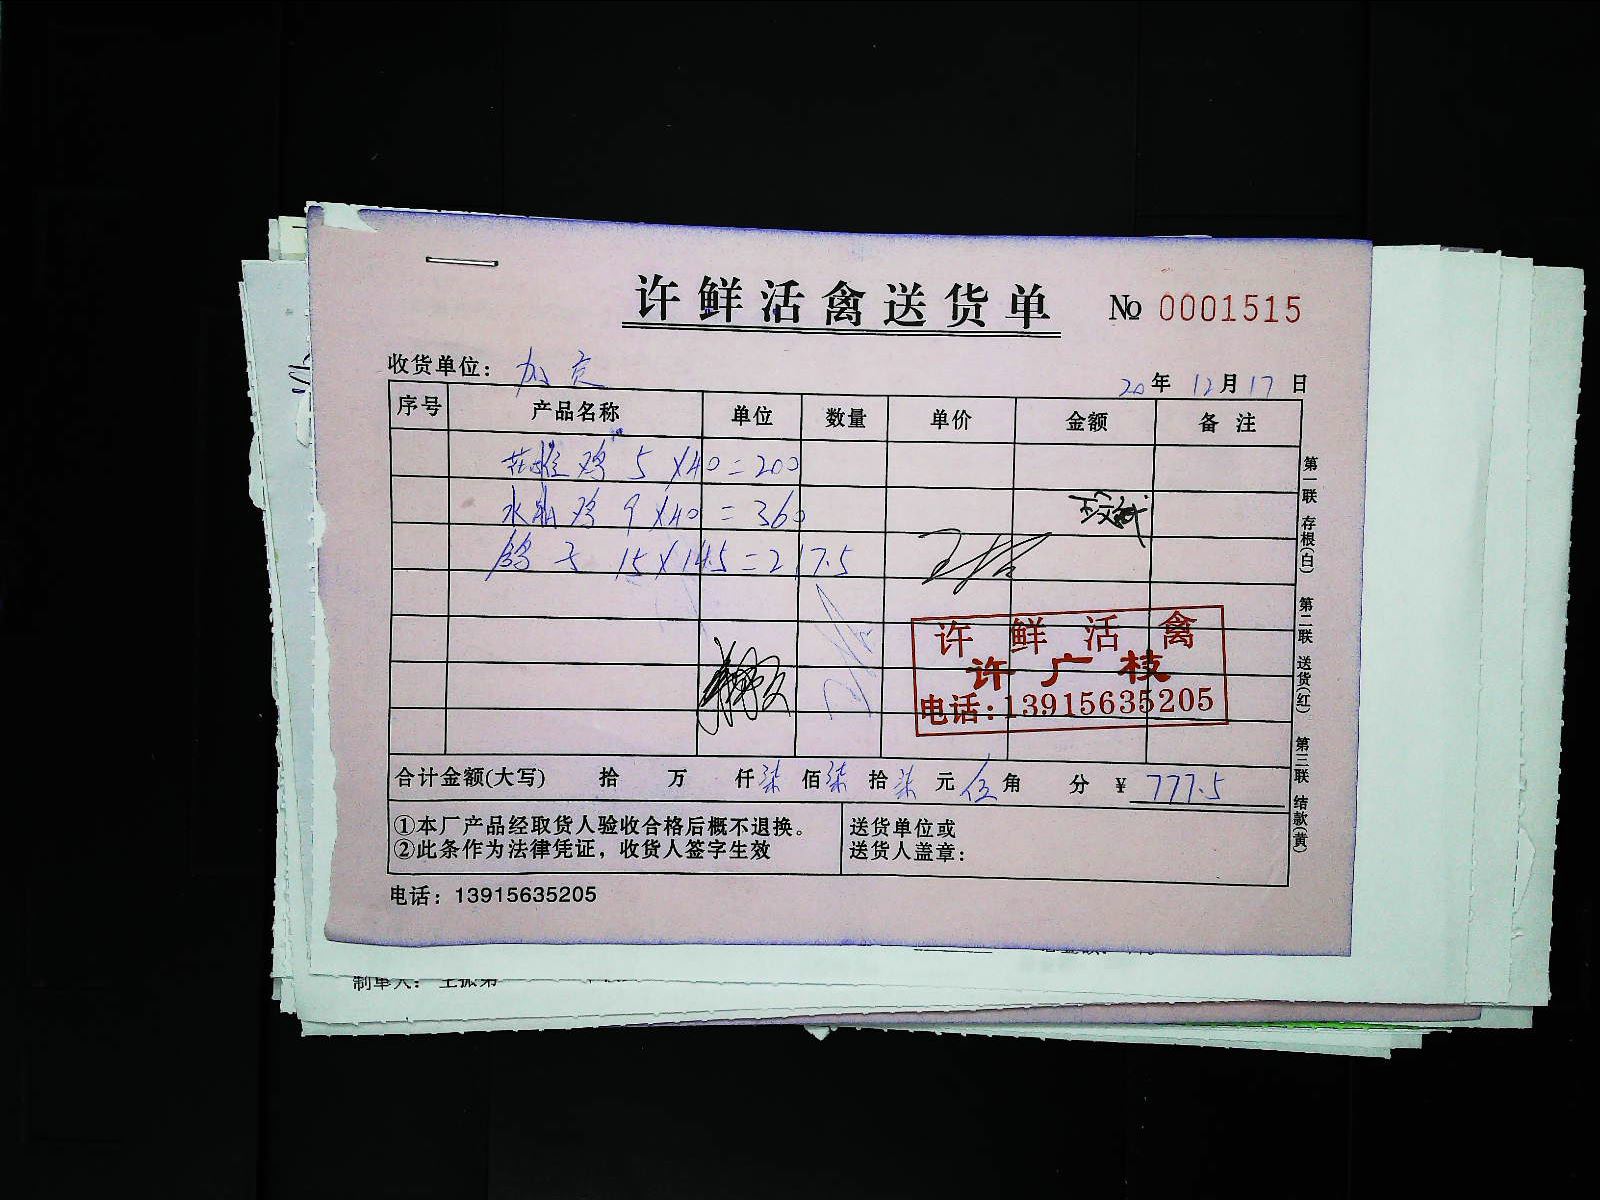 许鲜活禽送货单 № 0001515
收货单位:
20年 12月17日
序号 产品名称 单位 数量 单价 金额 备注
鸡 5×40=200
水 鸡 9×40=360
鸽子 15×14.5=217.5
许鲜活禽
许广枝
电话:13915635205
合计金额(大写) 拾 万 仟柒佰柒拾柒元伍角 分 ¥ 777.5
①本厂产品经取货人验收合格后概不退换。
②此条作为法律凭证，收货人签字生效
送货单位或
送货人盖章:
电话: 13915635205
第一联 存根(白) 第二联 送货(红) 第三联 结款(黄)
制单人: